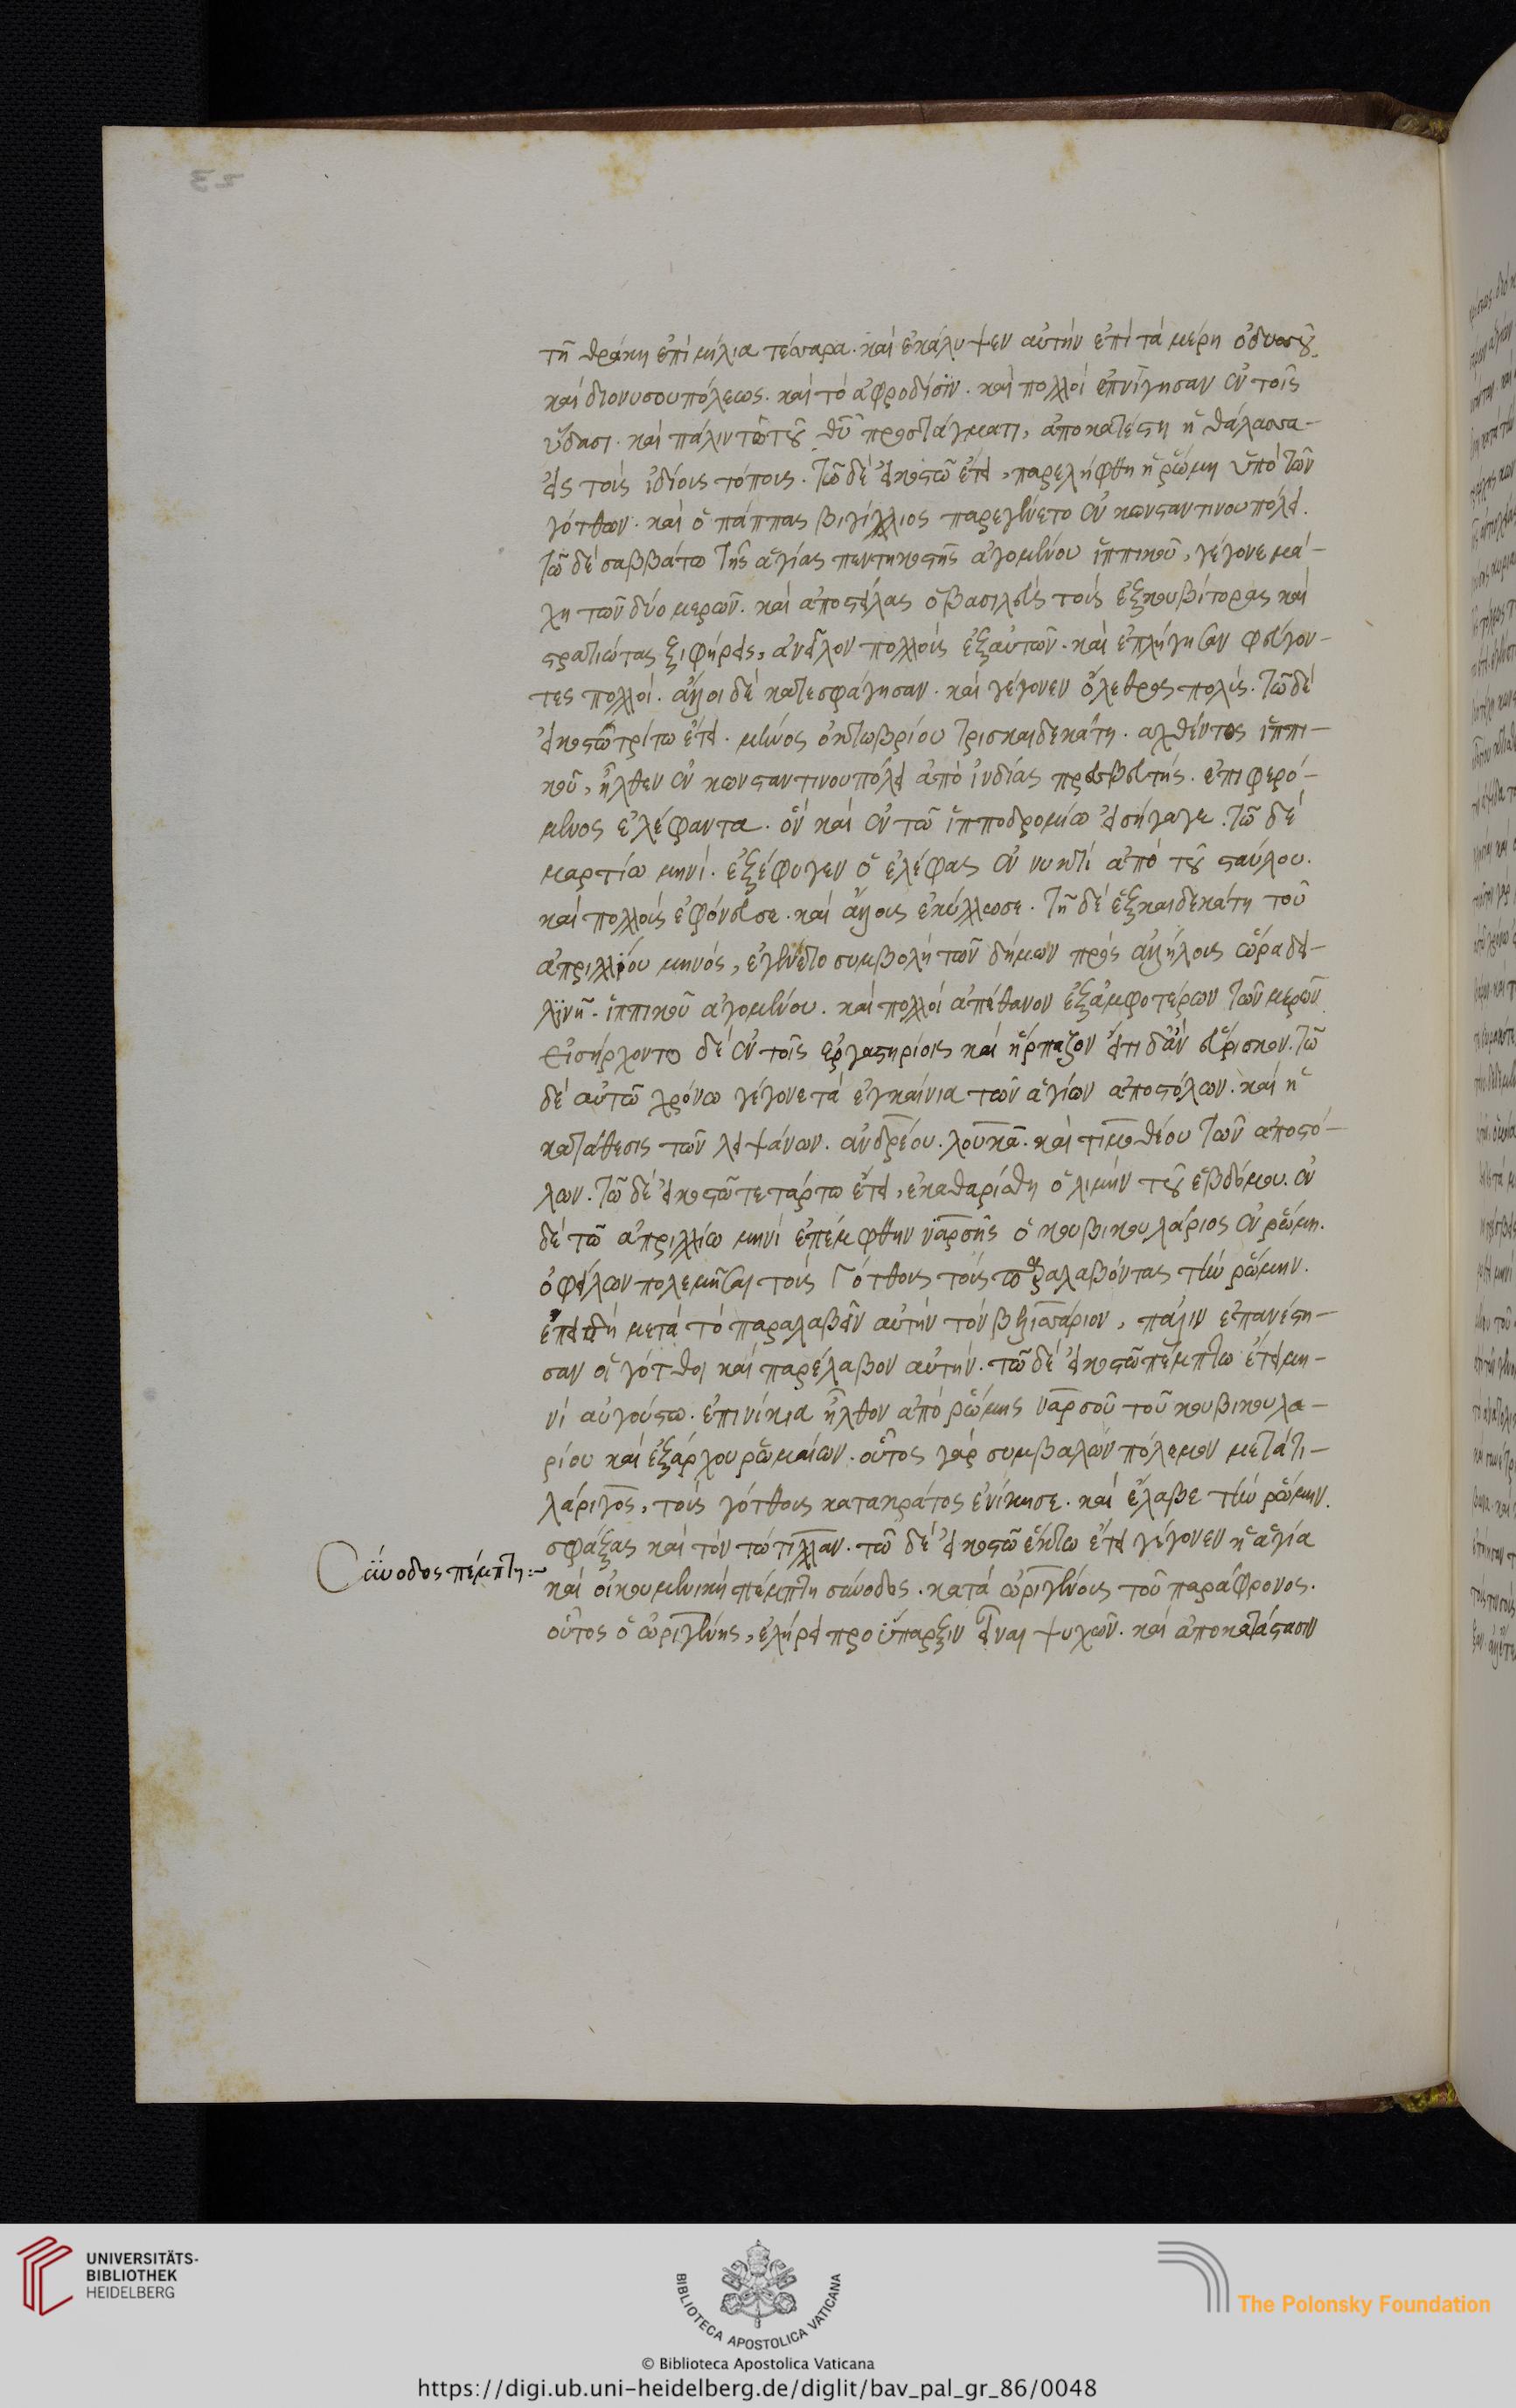 τῇ θράκη ἐπὶ μίλια τέσσαρα. καὶ ἐκάλυψεν αὐτὴν ἐπὶ τὰ μέρη ὀδυσσοῦ
καὶ διονυσουπόλεως. καὶ τὸ ἀφροδίσιν. καὶ πολλοὶ ἐπνίγησαν ἐν τοῖς
ὕδασι. καὶ πάλιν τῶ τοῦ θῦ προστάγματι, ἀποκατέστη ἡ θάλασσα
εἰς τοὺς ἰδίους τόπους. τῶ δὲ εἰκοστῶ ἔτει, παρελήφθη ἡ ῥώμη ὑπὸ τῶν
γότθων. καὶ ὁ πάππας βιγίλλιος παρεγένετο ἐν κωνσταντινουπόλει.
τῶ δὲ σαββάτω τῆς ἁγίας πεντηκοστῆς ἀγομένου ἱππικοῦ, γέγονε μά-
χη τῶν δύο μερῶν. καὶ ἀποστείλας ὁ βασιλεὺς τοὺς ἐξκουβίτορας καὶ
στρατιώτας ξιφήρεις, ἀνεῖλον πολλοὺς ἐξ αὐτῶν. καὶ ἐπλήγησαν φεύγον-
τες πολλοί. ἄλλοι δὲ κατεσφάγησαν. καὶ γέγονεν ὄλεθρος πολύς. τῶ δὲ
εἰκοστῶ τρίτω ἔτει. μηνὸς ὀκτωβρίου τρισκαιδεκάτη. ἀχθέντος ἱππι-
κοῦ, ἦλθεν ἐν κωνσταντινουπόλει ἀπὸ ἰνδίας πρεσβευτής. ἐπιφερό-
μενος ἐλέφαντα. ὃν καὶ ἐν τῶ ἱπποδρομίω εἰσήγαγε. τῶ δὲ
μαρτίω μηνί. ἐξέφυγεν ὁ ἐλέφας ἐν νυκτὶ ἀπὸ τοῦ σταύλου.
καὶ πολλοὺς ἐφόνευσε. καὶ ἄλλους ἐκύλλωσε. τῇ δὲ ἑξκαιδεκάτη τοῦ
ἀπριλλίου μηνός, ἐγένετο συμβολὴ τῶν δήμων πρὸς ἀλλήλους ὥρα δει-
λινῆ. ἱππικοῦ ἀγομένου. καὶ πολλοὶ ἀπέθανον ἐξ ἀμφοτέρων τῶν μερῶν
εἰσήρχοντο δὲ ἐν τοῖς ἐργαστηρίοις καὶ ἥρπαζον εἴ τι δ' ἂν εὕρισκον. τῶ
δὲ αὐτῶ χρόνω γέγονε τὰ ἐγκαίνια τῶν ἁγίων ἀποστόλων. καὶ ἡ
κατάθεσις τῶν λειψάνων. ἀνδρέου. λουκᾶ. καὶ τιμοθέου τῶν ἀποστό-
λων. τῶ δὲ εἰκοστῶ τετάρτω ἔτει, ἐκαθαρίσθη ὁ λιμὴν τοῦ ἑβδόμου. ἐν
δὲ τῶ ἀπριλλίω μηνὶ ἐπέμφθην ναρσῆς ὁ κουβικουλάριος ἐν ῥώμη.
ὀφείλων πολεμῆσαι τοὺς Γότθους τοὺς παραλαβόντας τὴν ῥώμην.
ἐπειδὴ μετὰ τὸ παραλαβεῖν αὐτὴν τὸν βελισσάριον, πάλιν ἐπανέστη-
σαν οἱ γότθοι καὶ παρέλαβον αὐτήν. τῶ δὲ εἰκοστῶ πέμπτω ἔτει μη-
νὶ αὐγούστω. ἐπινίκια ἦλθον ἀπὸ ῥώμης ναρσοῦ τοῦ κουβικουλα-
ρίου καὶ ἐξάρχου ῥωμαίων. οὗτος γὰρ συμβαλὼν πόλεμον μετὰ τι-
λάριγος, τοὺς γότθους κατακράτος ἐνίκησε. καὶ ἔλαβε τὴν ῥώμην.
σφάξας καὶ τὸν τώτιλλαν. τῶ δὲ εἰκοστῶ ἕκτω ἔτει γέγονεν ἡ ἁγία
Σύνοδος πέμπτη:-
καὶ οἰκουμενικὴ πέμπτη σύνοδος. κατὰ ὠριγένους τοῦ παράφρονος.
οὗτος ὁ ὠριγένης, ἐλήρει προΰπαρξιν εἶναι ψυχῶν. καὶ ἀποκατάστασιν
23
UNIVERSITÄTS-
BIBLIOTHEK
HEIDELBERG
BIBLIOTECA APOSTOLICA VATICANA
The Polonsky Foundation
© Biblioteca Apostolica Vaticana
https://digi.ub.uni-heidelberg.de/diglit/bav_pal_gr_86/0048